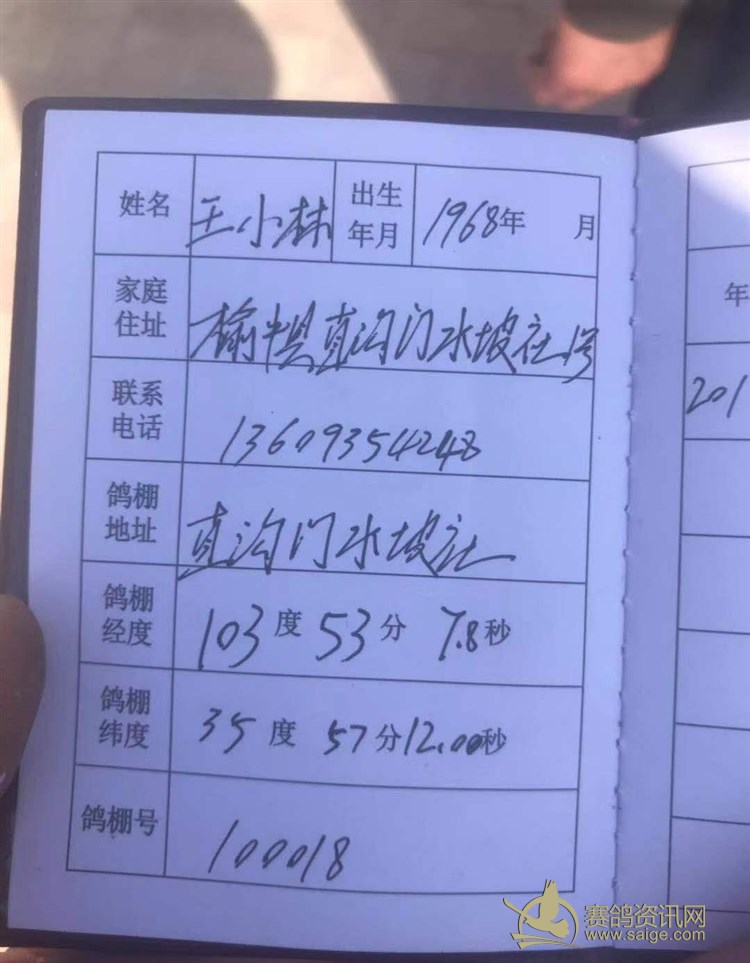 姓名 王小林 出生年月 1968年 月
家庭住址 榆中县直沟门水坡社1号
联系电话 13609354248
鸽棚地址 直沟门水坡社
鸽棚经度 103度 53分 7.8秒
鸽棚纬度 35度 57分12.00秒
鸽棚号 100018
年
201
赛鸽资讯网
www.saige.com